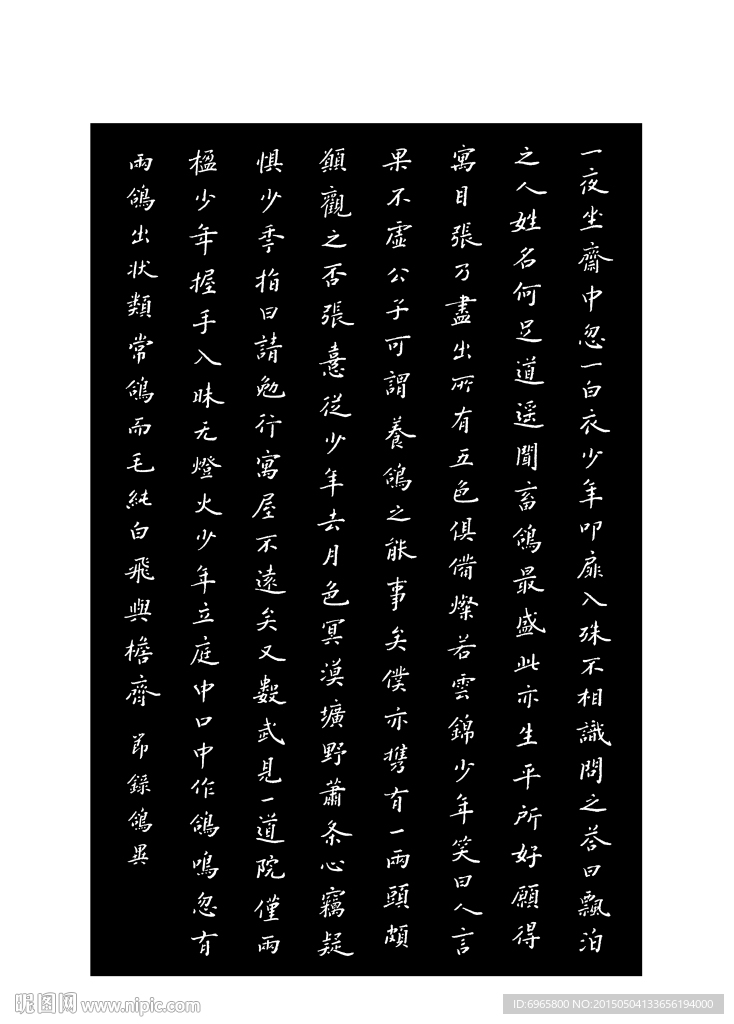 一夜坐齋中忽一白衣少年叩扉入殊不相識問之答曰飄泊
之人姓名何足道遥聞畜鴿最盛此亦生平所好願得
寓目張乃盡出所有五色俱備燦若雲錦少年笑曰人言
果不虛公子可謂養鴿之能事矣僕亦携有一兩頭頗
願觀之否張憙從少年去月色冥漠壙野蕭条心竊疑
惧少年指曰請勉行寓屋不遠矣又數武見一道院僅兩
楹少年握手入昧无燈火少年立庭中口中作鴿鳴忽有
兩鴿出状類常鴿而毛純白飛與檐齊 節錄鴿異
昵图网 www.nipic.com
ID:6965800 NO:20150504133656194000